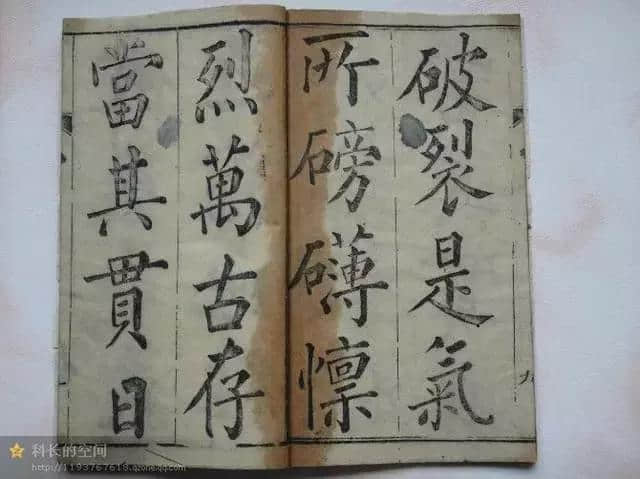 破裂是氣
所磅礴懍
烈萬古存
當其貫日
科长的空间
http://1193767618.qzone.qq.com